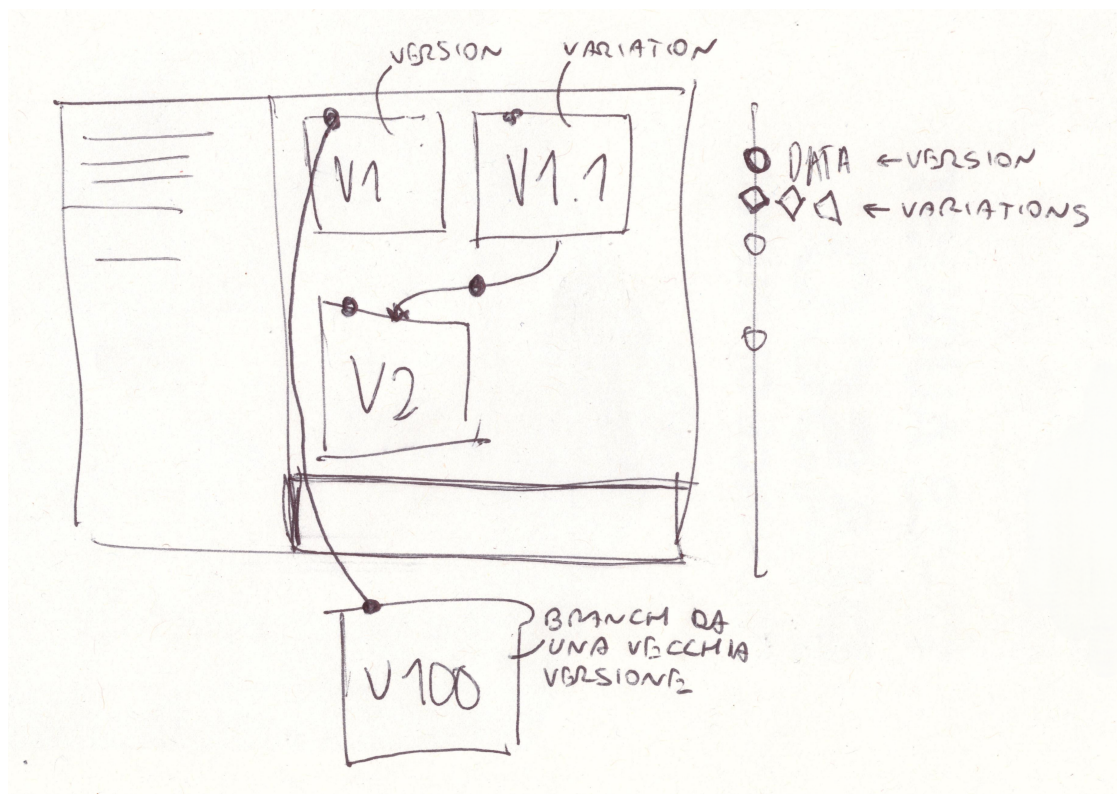 VERSION
VARIATION
V1
V1.1
DATA ← VERSION
← VARIATIONS
V2
V100
BRANCH DA
UNA VECCHIA
VERSIONE